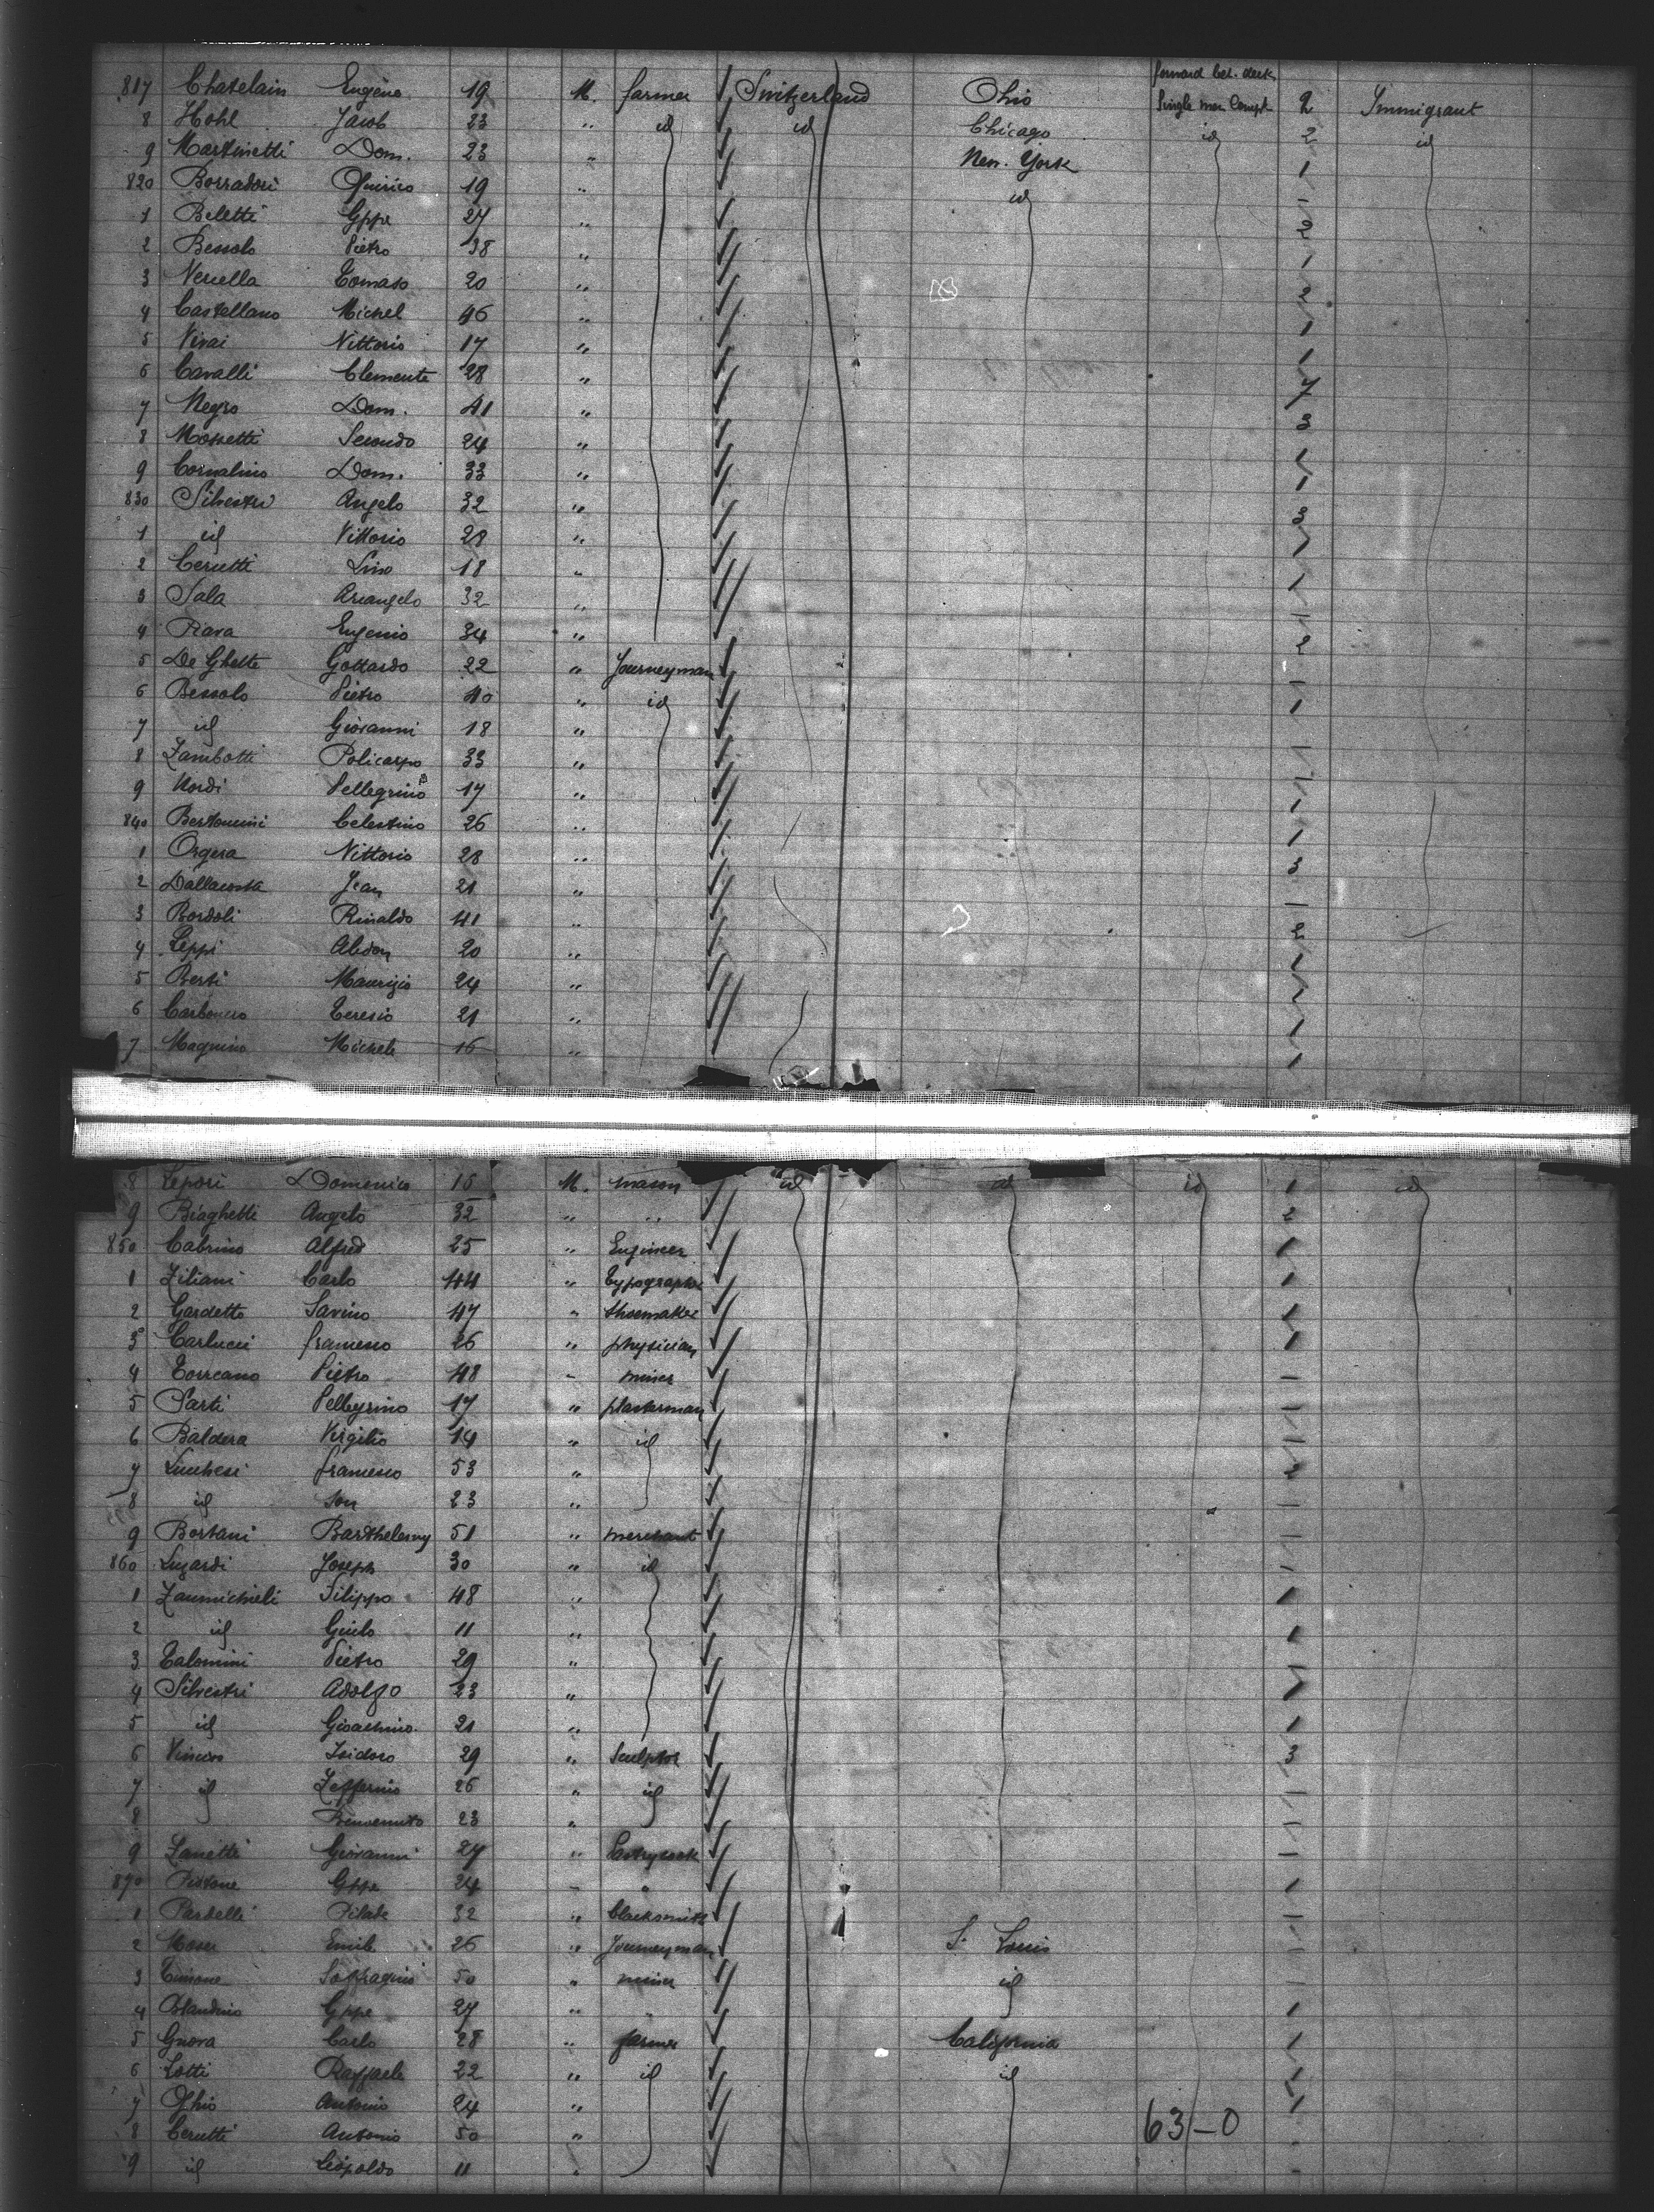 forward bet. deck
817 Chatelain Eugène 19 M. farmer Switzerland Ohio Single men Compt 2 Immigrant
8 Hohl Jacob 23 " id id Chicago id 2 id
9 Martinetti Dom. 23 " New. York 1
820 Borradori Quirico 19 " id -
1 Beletti Gppe 27 " 2
2 Bessolo Pietro 38 " 1
3 Vercella Tomaso 20 " 2
4 Castellano Michel 46 " 1
5 Vivai Vittorio 17 " 1
6 Cavalli Clemente 28 " 7
7 Negro Dom. 41 " 3
8 Mossetti Secondo 24 " 1
9 Cornalino Dom. 33 " 1
830 Silvestri Angelo 32 " 3
1 id Vittorio 28 " 1
2 Cerutti Lino 18 " 1
3 Sala Arcangelo 32 " 1
4 Rava Eugenio 34 " 2
5 De Ghette Gottardo 22 " Journeyman -
6 Bessolo Pietro 40 " id 1
7 id Giovanni 18 "
8 Zambotti Policarpo 33 " -
9 Nordi Pellegrino 17 " 1
840 Bertoncini Celestino 26 " 1
1 Orgera Vittorio 28 " 3
2 Dallacosta Jean 21 " -
3 Bordoli Rinaldo 41 " 2
4 Zeppi 20 " 1
5 Berti Maurizio 24 " 1
6 Carbonero Teresio 21 " 1
7 Magnino Michele 16 " 1
8 Lepori Domenico 15 M. mason id id id 1 id
9 Biaghetti Angelo 32 " " 2
850 Cabrino Alfred 25 " Engineer 1
1 Ziliani Carlo 44 " Typographer 1
2 Gardetto Savino 47 " Shoemaker
3 Carlucci francesco 26 " physician 1
4 Torreano Pietro 48 " miner -
5 Sarti Pellegrino 17 " plasterman 1
6 Baldera Virgilio 14 " id 1
7 Lucchesi francesco 53 " 2
8 id son 23 " -
9 Bortani Barthelemy 51 " merchant -
860 Luzardi Joseph 30 " id -
1 Zaumichieli Filippo 48 " 1
2 id 11 " 1
3 Talomini Pietro 29 " 1
4 Silvestri Adolfo 23 " 1
5 id Gioachino 21 " 1
6 Isidoro 29 " Sculptor 3
7 id Zefferino 26 " id -
8 Benvenuto 23 " -
9 Zanetti Giovanni 27 " Pastrycook -
870 Pistone Gppe 24 " " 1
1 Pardelli Pilade 32 " blacksmith -
2 Moser Emile 26 " Journeyman S. Louis -
3 50 " miner id -
4 Gppe 27 " " 1
5 Carlo 28 " farmer California 1
6 Lotti Raffaele 22 " id id 1
7 Ghio Antonio 24 " 1
8 Cerutti Antonio 50 " 63-0 -
9 id Leopoldo 11 " -